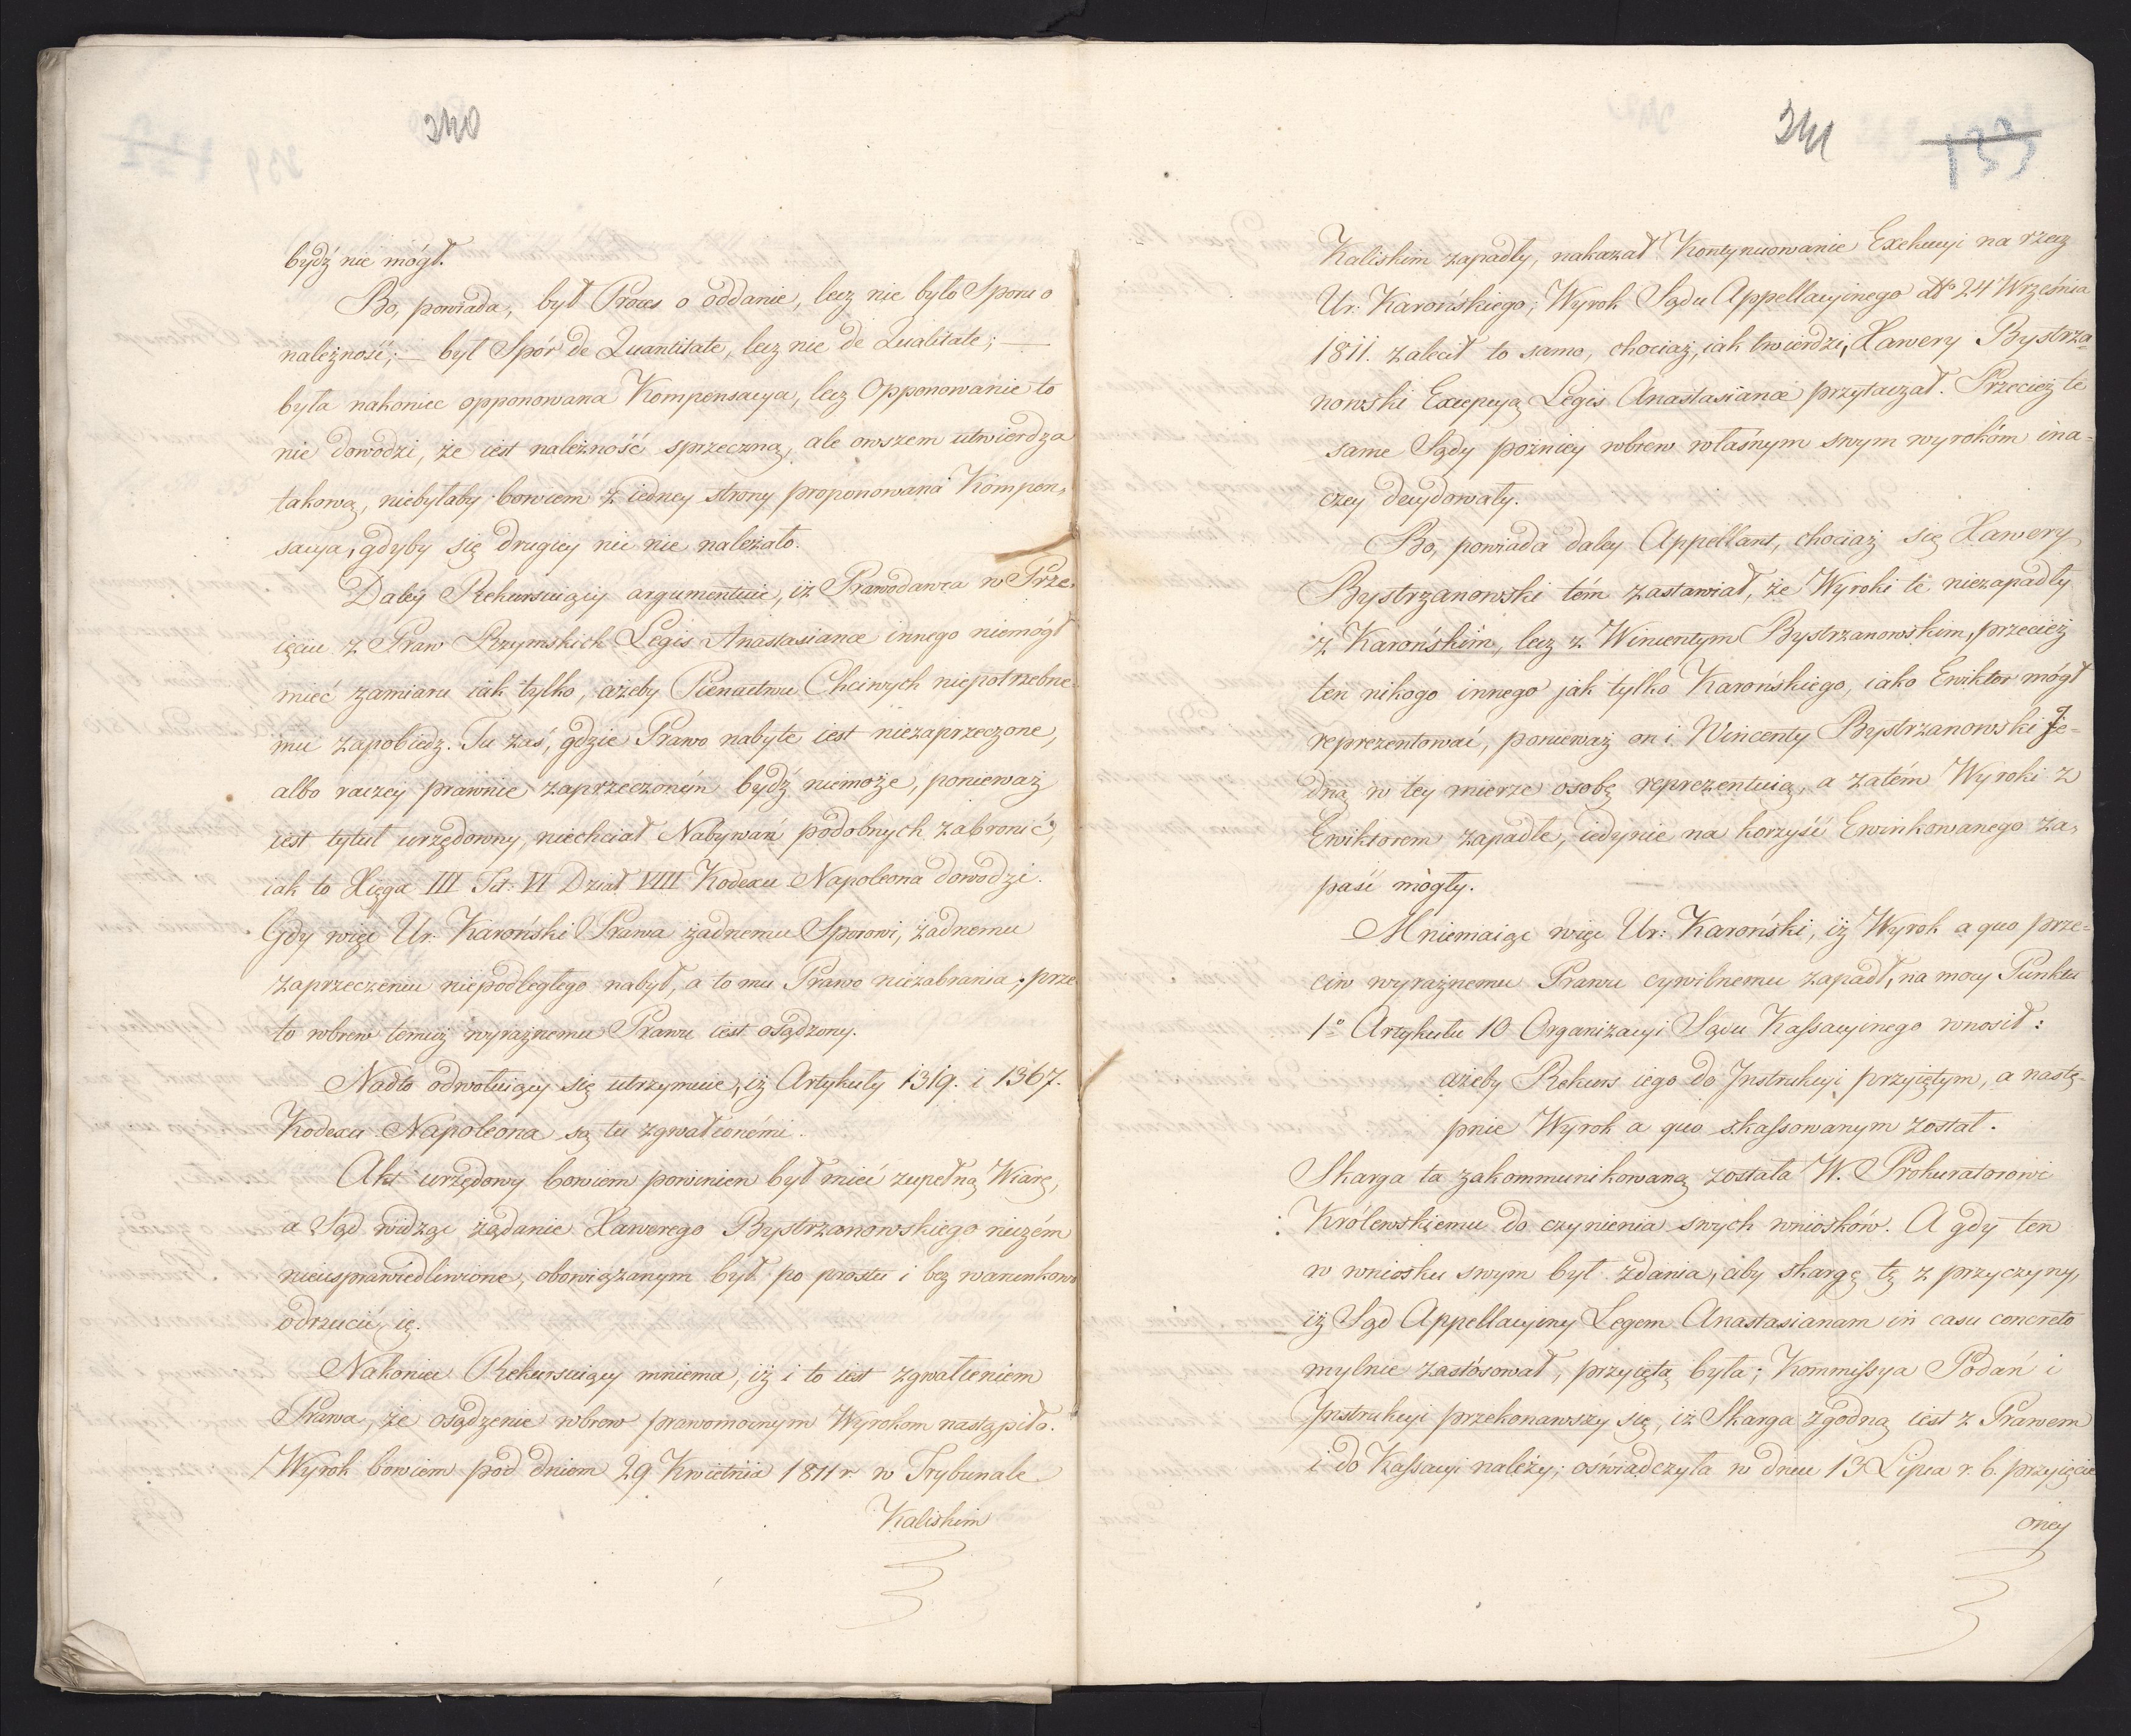 240
bydź nie mógł.
Bo, powiada, był Proces o oddanie, lecz nie było Sporu o
należność; — był Spór de Quantitate, lecz nie de Qualitate; —
była nakoniec opponowana Kompensacya, lecz Opponowanie to
nie dowodzi, że iest należność sprzeczną, ale owszem utwierdza
takową, niebyłaby bowiem z iedney strony proponowana Kompen„
sacya, gdyby się drugiey nic nie należało.
Daley Rekursuiący argumentuie, iż Prawodawca w Prze„
ięciu z Praw Rzymskich Legis Anastasianæ innego niemógł
mieć zamiaru iak tylko, ażeby Pieniactwu Chciwych niepotrzebne„
mu zapobiedz. Tu zaś, gdzie Prawo nabyte iest niezaprzeczone,
albo raczey prawnie zaprzeczoném bydź niemoże, ponieważ
iest tytuł urzędowny, niechciał Nabywań podobnych zabronić,
iak to Xięga III Tit: VI Dział VIII Kodexu Napoleona dowodzi.
Gdy więc Ur. Karoński Prawa żadnemu Sporowi, żadnemu
zaprzeczeniu niepodległego nabył, a to mu Prawo niezabrania; prze„
to wbrew temuż wyraźnemu Prawu iest osądzony.
Nadto odwołuiący się utrzymuie, iż Artykuły 1319. i 1367.
Kodexu Napoleona są tu zgwałconémi.
Akt urzędowy bowiem powinien był mieć zupełną Wiarę,
a Sąd widząc żądanie Xawerego Bystrzanowskiego niczém
nieusprawiedliwione, obowiązanym był po prostu i bez warunkowo
odrzucić ie.
Nakoniec Rekursuiący mniema, iż i to iest zgwałceniem
Prawa, że osądzenie wbrew prawomocnym Wyrokom nastąpiło.
Wyrok bowiem pod dniem 29 Kwietnia 1811 r w Trybunale
Kaliskim
241
133
Kaliskim zapadły, nakazał Kontynuowanie Exekucyi na rzecz
Ur: Karońskiego; Wyrok Sądu Appellacyinego dtto 24 Września
1811. zalecił to samo, chociaż, iak twierdzi, Xawery Bystrza=
nowski Excepcyą Legis Anastasianæ przytaczał. Przecież te
same Sądy pozniey wbrew własnym swym wyrokóm ina=
czey decydowały.
Bo, powiada daley Appellant, chociaż się Xawery
Bystrzanowski tém zastawiał, że Wyroki te niezapadły
z Karońskim, lecz z Wincentym Bystrzanowskim, przecież
ten nikogo innego jak tylko Karońskiego, iako Ewiktor mógł
reprezentować, ponieważ on i Wincenty Bystrzanowski Je=
dną w tey mierze osobę reprezentuią, a zatém Wyroki z
Ewiktorem zapadłe, iedynie na korzyść Ewinkowanego za„
paść mogły.
Mniemaiąc więc Ur: Karoński, iż Wyrok a quo prze=
ciw wyraźnemu Prawu cywilnemu zapadł, na mocy Punktu
1º Artykułu 10 Organizacyi Sądu Kassacyinego wnosił:
ażeby Rekurs iego do Jnstrukcyi przyiętym, a nastę„
pnie Wyrok a quo skassowanym został.
Skarga ta zakommunikowaną została W. Prokuratorowi
Królewskiemu do czynienia swych wniosków. A gdy ten
w wniosku swym był zdania, aby skargę tę z przyczyny,
iż Sąd Appellacyiny Legem Anastasianam in casu concreto
mylnie zastósował, przyięta była; Kommissya Podań i
Jnstrukcyi przekonawszy się, iż Skarga zgodną iest z Prawem
i do Kassacyi należy; oświadczyła w dniu 13 Lipca r. b. przyięcie
oney